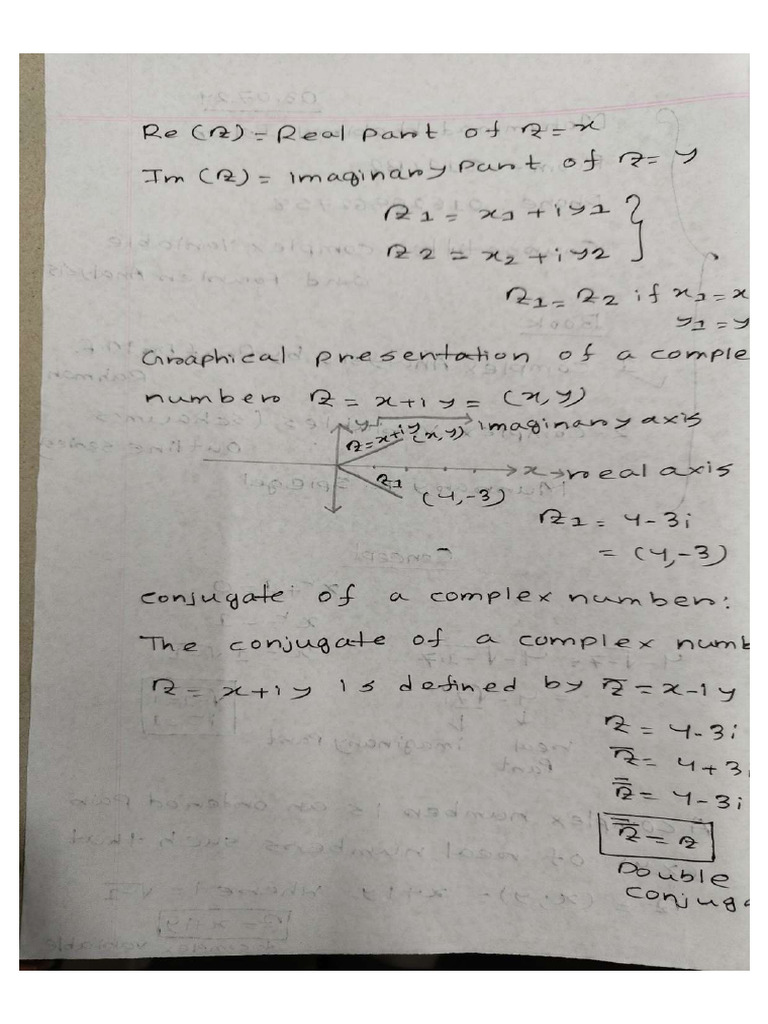 Re(z) = Real part of z = x
Im(z) = imaginary part of z = y
z1 = x1 + iy1
z2 = x2 + iy2
z1 = z2 if x1 = x
y1 = y
Graphical presentation of a comple
number z = x+iy = (x,y)
y
imaginary axis
z=x+iy (x,y)
x → real axis
z1
(4,-3)
z1 = 4-3i
= (4,-3)
conjugate of a complex number:
The conjugate of a complex numb
z = x+iy is defined by z̅ = x-iy
z = 4-3i
z̅ = 4+3i
z̿ = 4-3i
z̿ = z
Double
conjuga